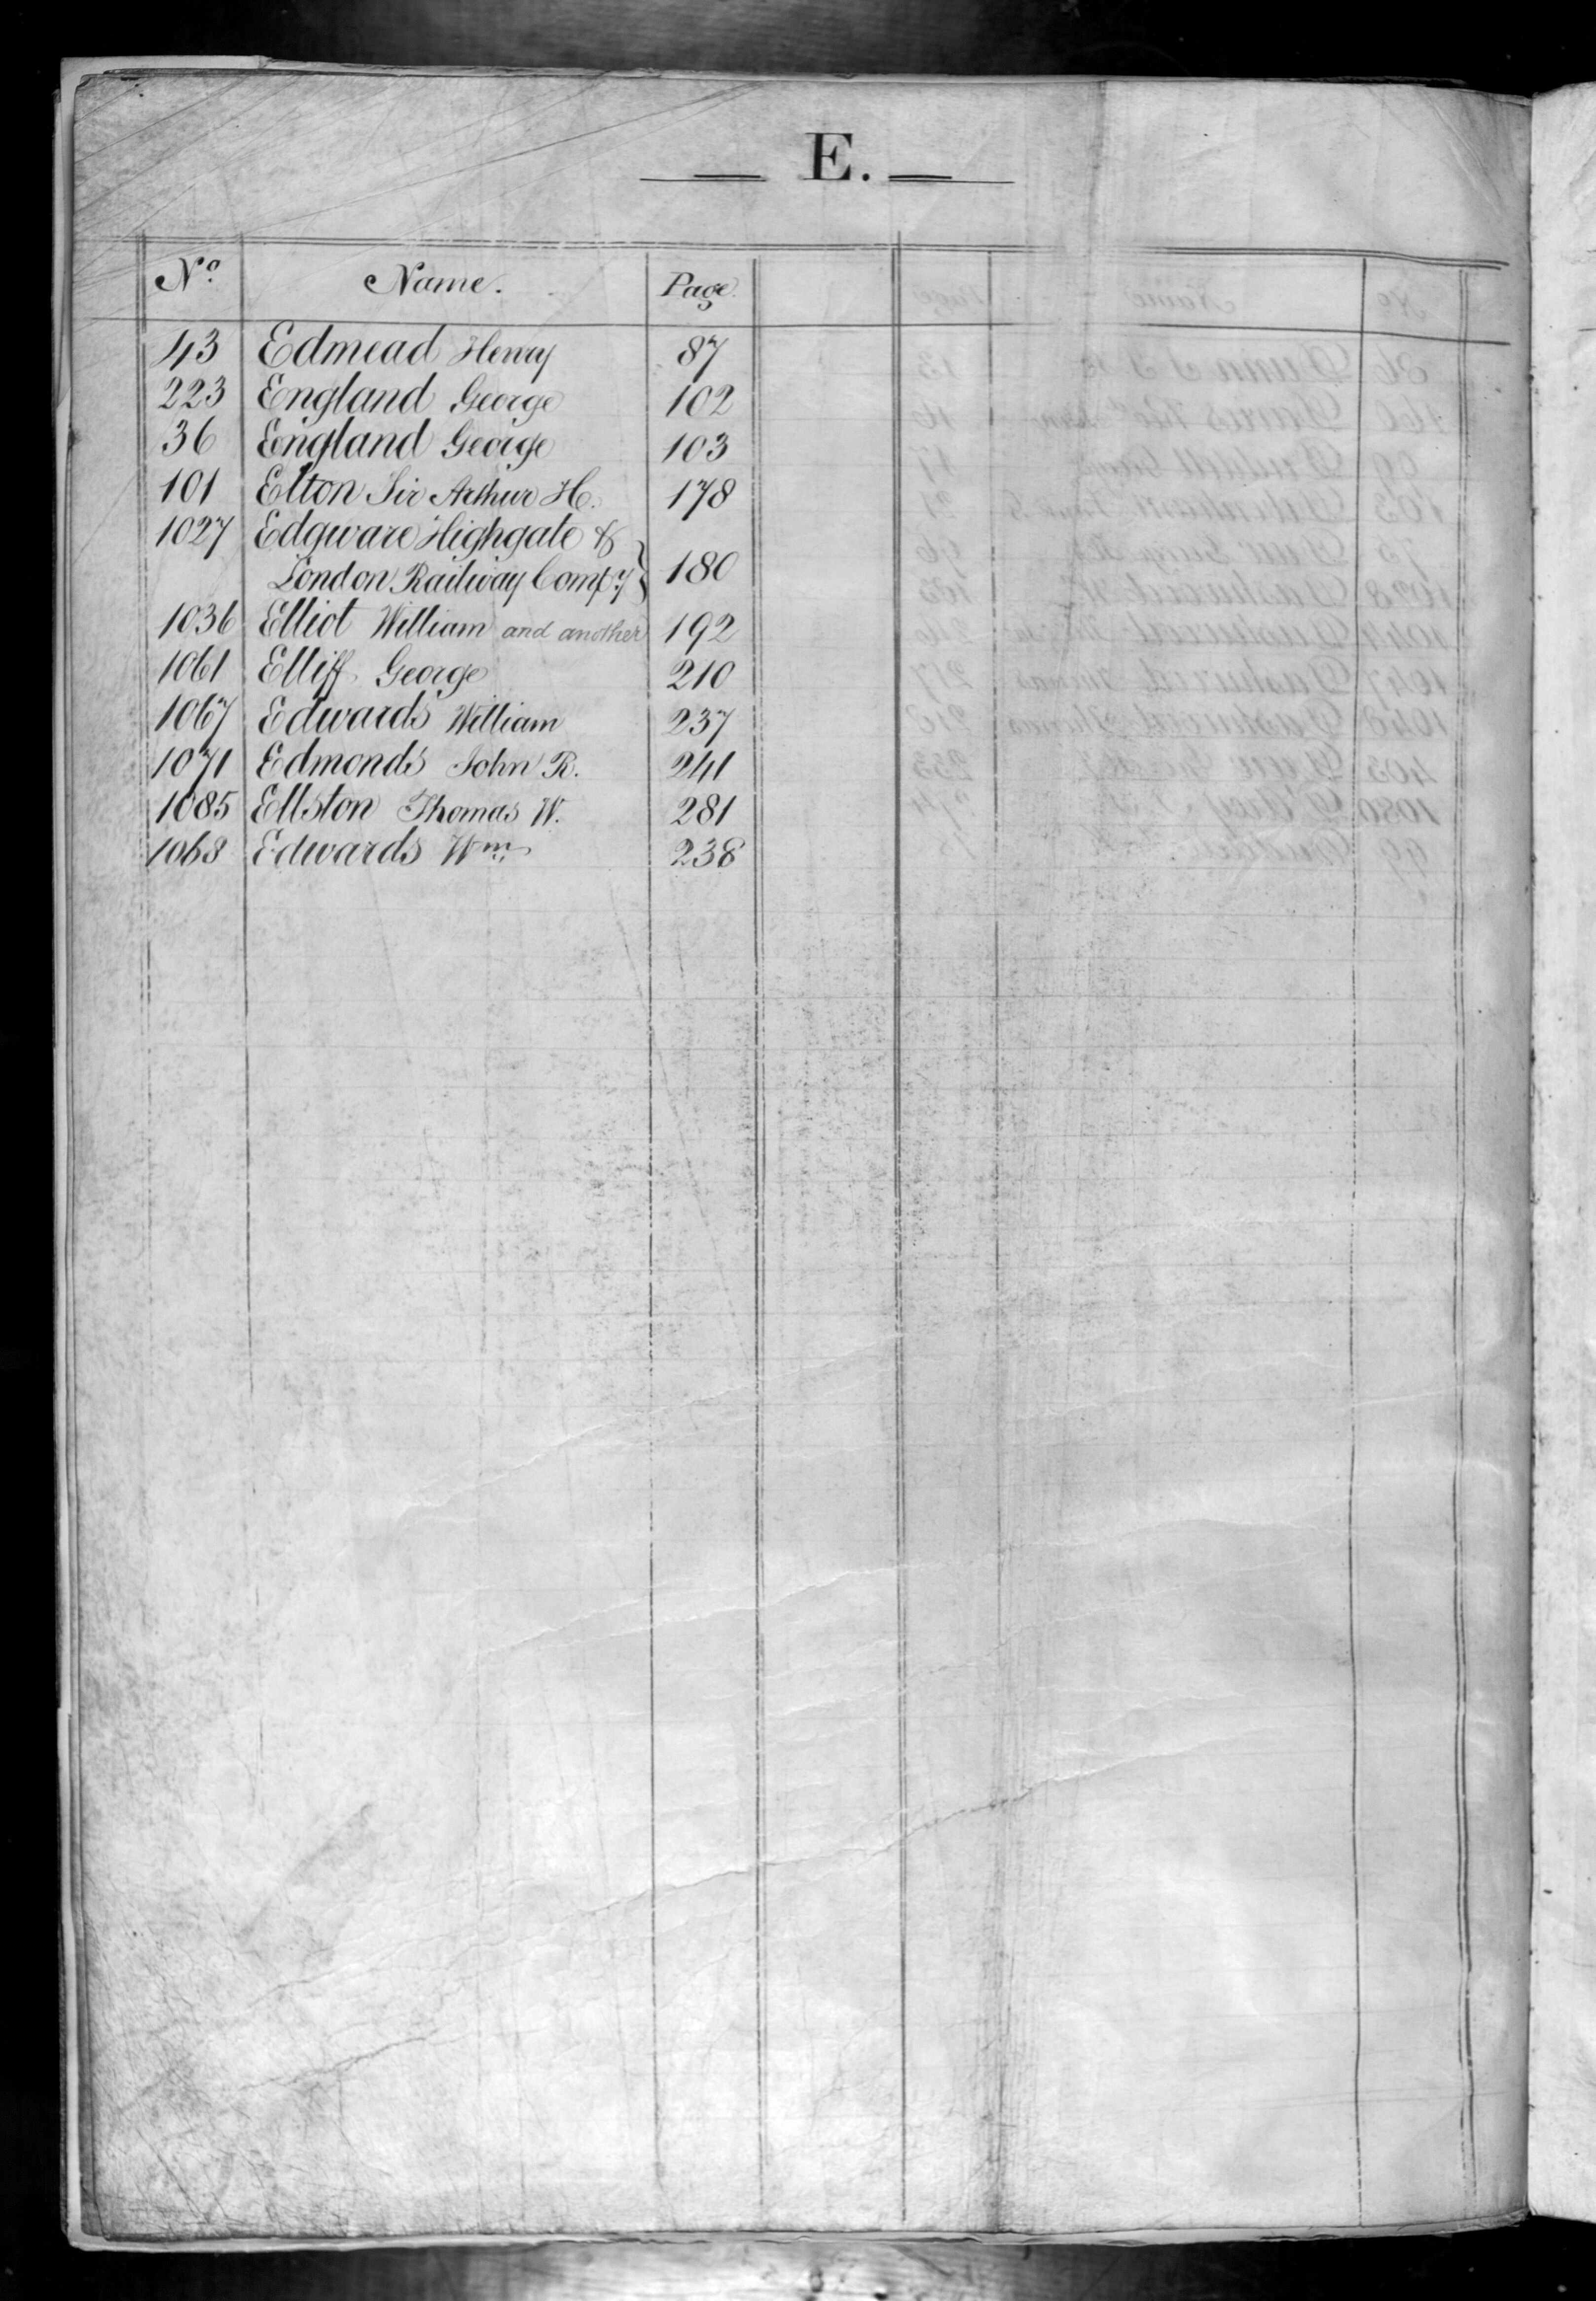 E.
No. Name. Page.
43 Edmead Henry 87
223 England George 102
36 England George 103
101 Elton Sir Arthur H. 178
1027 Edgware Highgate &
London Railway Compy } 180
1036 Elliot William and another 192
1061 Elliff George 210
1067 Edwards William 237
1071 Edmonds John R. 241
1085 Ellston Thomas W. 281
1068 Edwards Wm. 238